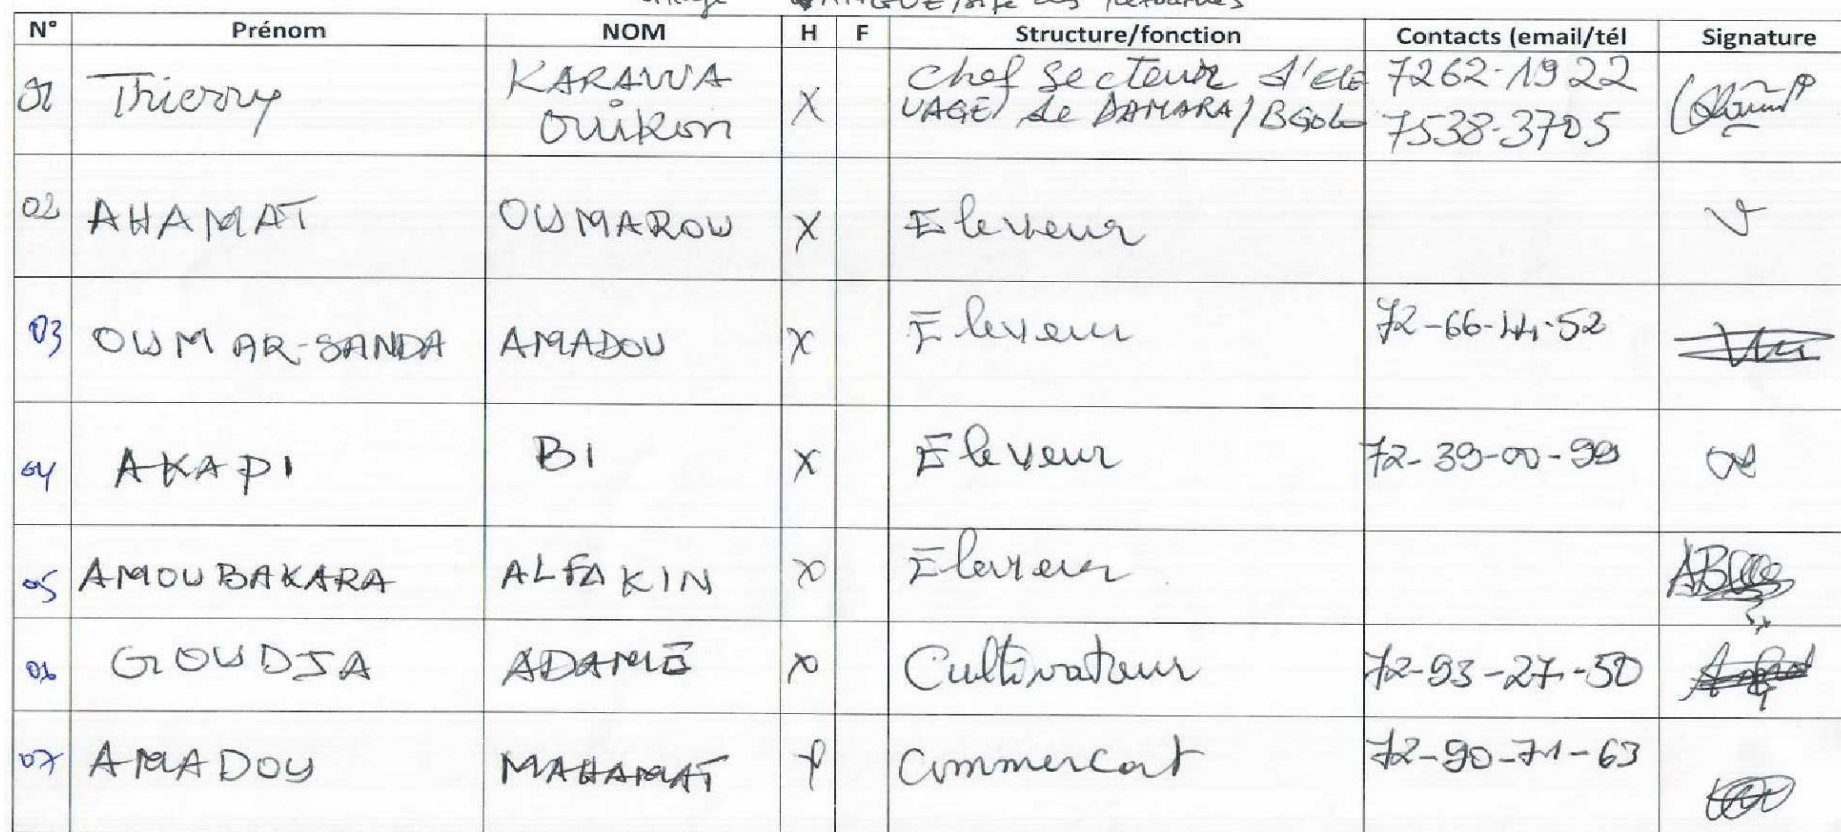 N° Prénom NOM H F Structure/fonction Contacts (email/tél Signature
01 Thierry KARAWA X Chef Secteur d'ELE 7262-1922
Ouikon VAGE de DAMARA/ 7538-3705
02 AHAMAT OUMAROU X Eleveur
03 OUMAR-SANDA AMADOU X Eleveur 72-66-44-52
04 AKAPI BI X Eleveur 72-39-00-99
05 AMOUBAKARA ALFAKIN X Eleveur
06 GOUDJA ADAMÉ X Cultivateur 72-93-27-50
07 AMADOU MAHAMAT X Commercat 72-90-71-63